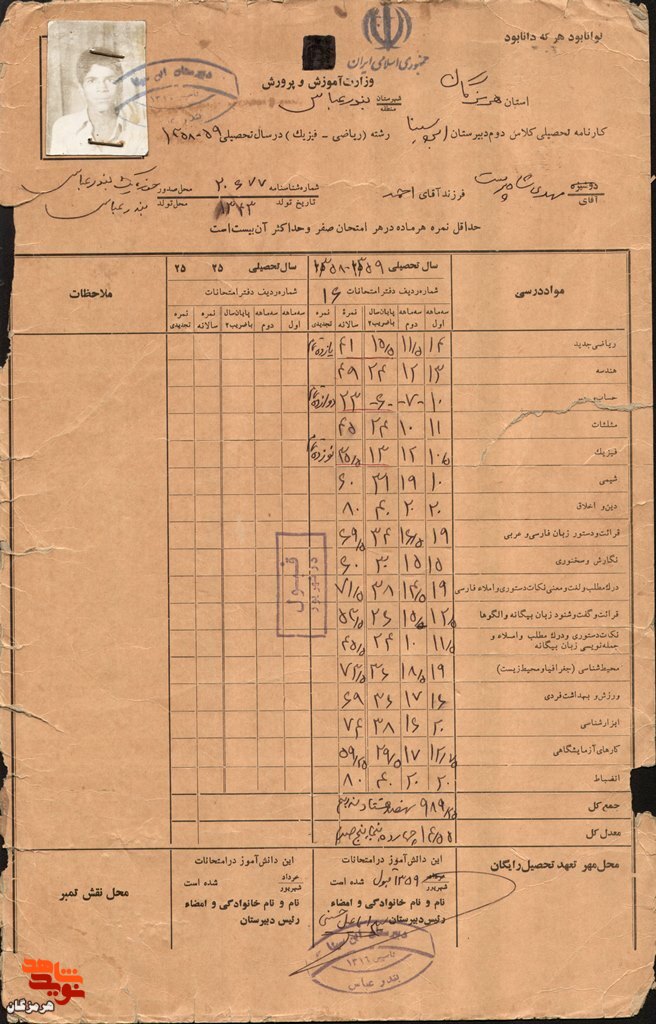 توانا بود هر که دانا بود
جمهوری اسلامی ایران
وزارت آموزش و پرورش
استان هرمزگان شهرستان منطقه بندرعباس
دبیرستان ابن سینا
کارنامه تحصیلی کلاس دوم دبیرستان ابن سینا رشته (ریاضی - فیزیک) در سال تحصیلی ۵۹-۱۳۵۸
دوشیزه آقای مهدی شاه پرست فرزند آقای احمد شماره شناسنامه ۲۰۶۷۷ محل صدور حوزه یک بندرعباس
تاریخ تولد ۱۳۴۳ محل تولد بندرعباس
حداقل نمره هر ماده در هر امتحان صفر و حداکثر آن بیست است
مواد درسی سال تحصیلی ۱۳۵۸-۱۳۵۹ سال تحصیلی ۲۵ ۲۵ ملاحظات
شماره ردیف دفتر امتحانات ۱۶ شماره ردیف دفتر امتحانات
سه ماهه اول سه ماهه دوم پایان سال با ضریب ۲ نمره سالانه نمره تجدیدی سه ماهه اول سه ماهه دوم پایان سال با ضریب ۲ نمره سالانه نمره تجدیدی
ریاضی جدید ۱۴ ۱۱/۵ ۱۵/۵ ۴۱ یازده تمام
هندسه ۱۳ ۱۲ ۲۴ ۴۹
حساب ۱۰ -۷- -۶- ۲۳ دوازده تمام
مثلثات ۱۱ ۱۰ ۲۴ ۴۵
فیزیک ۱۰/۵ ۱۲ ۱۳ ۳۵/۵ نوزده تمام
شیمی ۱۰ ۱۹ ۳۱ ۶۰
دین و اخلاق ۲۰ ۲۰ ۴۰ ۸۰
قرائت و دستور زبان فارسی و عربی ۱۹ ۱۶/۵ ۳۴ ۶۹/۵
نگارش و سخنوری ۱۵ ۱۵ ۳۰ ۶۰
درک مطلب و لغت و معنی نکات دستوری و املاء فارسی ۱۹ ۱۴/۵ ۳۸ ۷۱/۵
قرائت و گفت و شنود زبان بیگانه و الگوها ۱۲/۵ ۱۵/۵ ۲۶ ۵۴/۵
نکات دستوری و درک مطلب و املاء و جمله نویسی زبان بیگانه ۱۱/۵ ۱۰ ۲۴ ۴۵/۵
محیط شناسی (جغرافیا و محیط زیست) ۱۹ ۱۸/۵ ۳۶ ۷۳/۵
ورزش و بهداشت فردی ۱۶ ۱۷ ۳۶ ۶۹
ابزار شناسی ۲۰ ۱۶ ۳۸ ۷۴
کارهای آزمایشگاهی ۱۲/۷۵ ۱۷ ۲۹/۵ ۵۹/۲۵
انضباط ۲۰ ۲۰ ۴۰ ۸۰
قبول
در شهریور
جمع کل ۹۸۹/۲۵
معدل کل ۱۴/۵۵
محل مهر تعهد تحصیل رایگان
این دانش آموز در امتحانات
خرداد شهریور ۱۳۵۹ قبول شده است
نام و نام خانوادگی و امضاء
رئیس دبیرستان
دبیرستان ابن سینا
تاسیس ۱۳۱۶
بندر عباس
این دانش آموز در امتحانات
خرداد شهریور شده است
نام و نام خانوادگی و امضاء
رئیس دبیرستان
محل نقش تمبر
نوید شاهد
هرمزگان